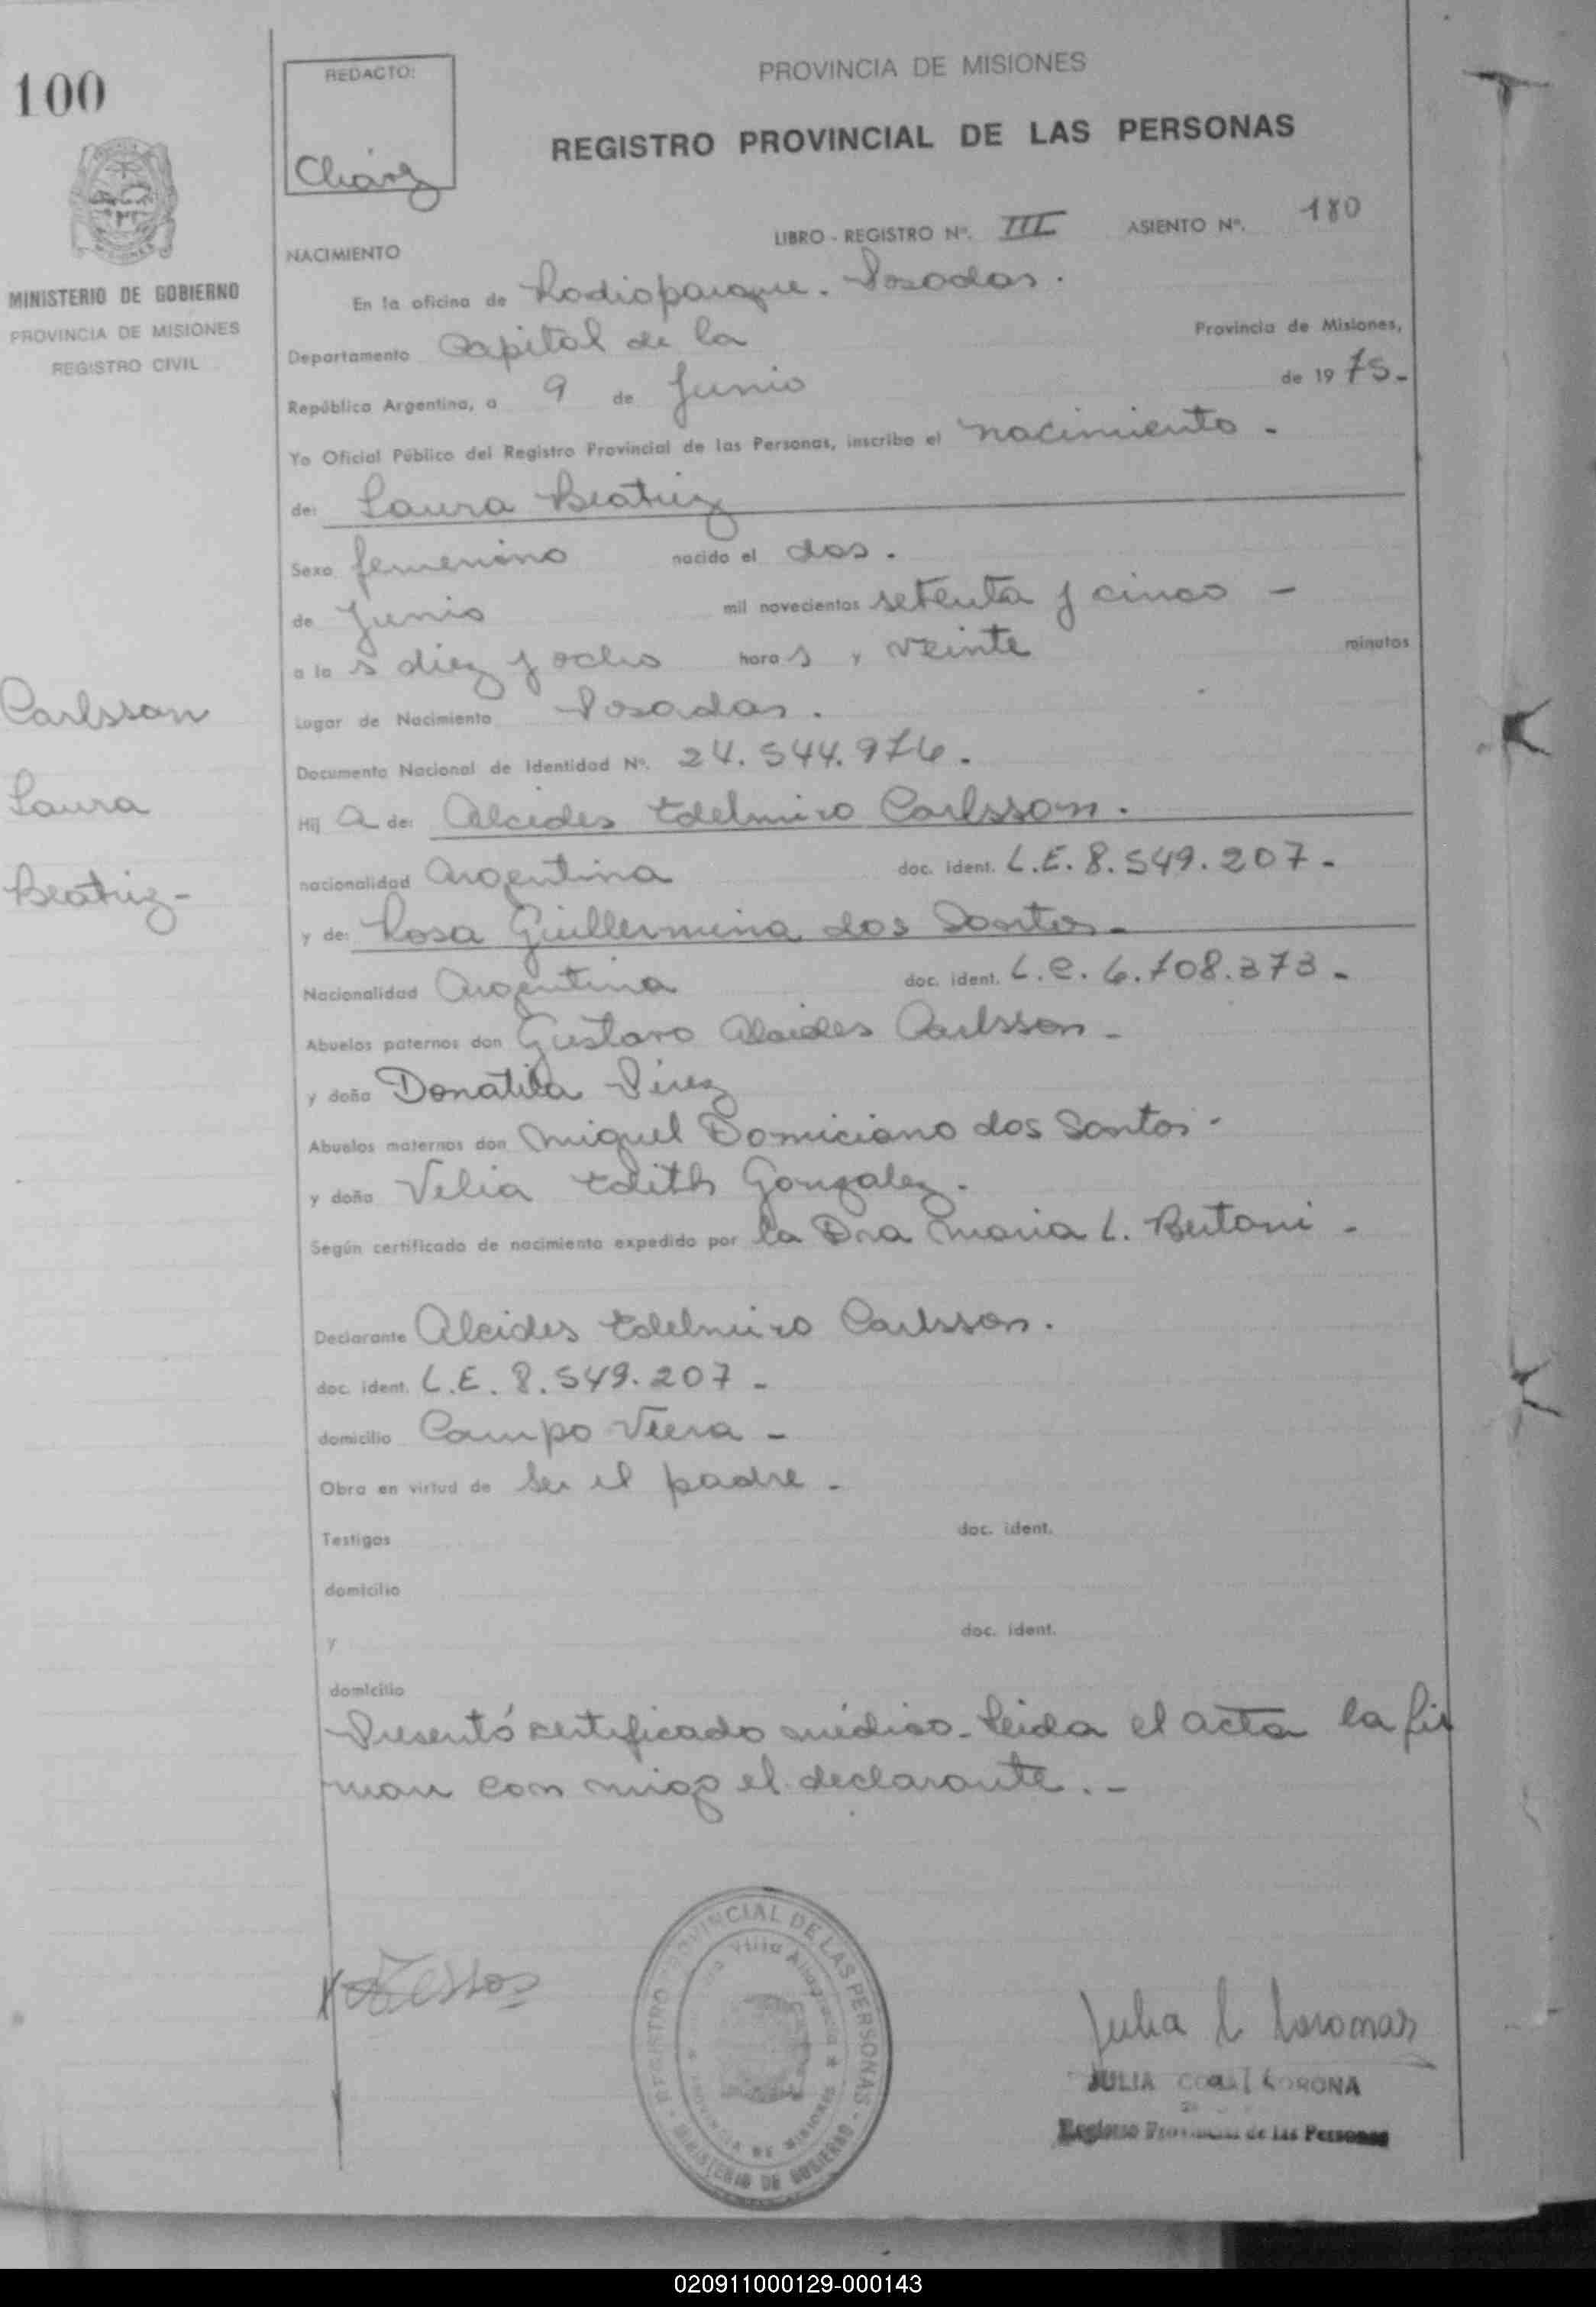 100
REDACTO:
PROVINCIA DE MISIONES
REGISTRO PROVINCIAL DE LAS PERSONAS
LIBRO - REGISTRO Nº. III ASIENTO Nº. 180
MINISTERIO DE GOBIERNO
PROVINCIA DE MISIONES
REGISTRO CIVIL
NACIMIENTO
En la oficina de Radioparque. Posadas.
Departamento Capital de la Provincia de Misiones,
República Argentina, a 9 de Junio de 1975-
Yo Oficial Público del Registro Provincial de las Personas, inscribo el nacimiento -
de: Laura Beatriz
Sexo femenino nacido el dos.
de Junio mil novecientos setenta y cinco -
a la s diez y ocho hora s y veinte minutos
Lugar de Nacimiento Posadas.
Documento Nacional de Identidad Nº. 24.544.976.
Hij a de: Alcides Edelmiro Carlsson.
nacionalidad Argentina doc. ident. L.E. 8.549.207-
y de: Rosa Guillermina dos Santos-
Nacionalidad Argentina doc. ident. L.C. 6.708.373-
Abuelos paternos don Gustavo Alcides Carlsson-
y doña Donatila Pirez
Abuelos maternos don Miguel Domiciano dos Santos-
y doña Velia Edith Gonzalez.
Según certificado de nacimiento expedido por la Dra Maria L. Bertoni-
Carlsson
Laura
Beatriz-
Declarante Alcides Edelmiro Carlsson.
doc. ident. L.E. 8.549.207-
domicilio Campo Viera-
Obra en virtud de ser el padre-
Testigos doc. ident.
domicilio
y doc. ident.
domicilio
Presentó certificado médico- leida el acta la fir
man con migo el declarante.-
REGISTRO PROVINCIAL DE LAS PERSONAS - MINISTERIO DE GOBIERNO
Villa
PROVINCIA DE MISIONES
JULIA
Registro Provincial de las Personas
020911000129-000143